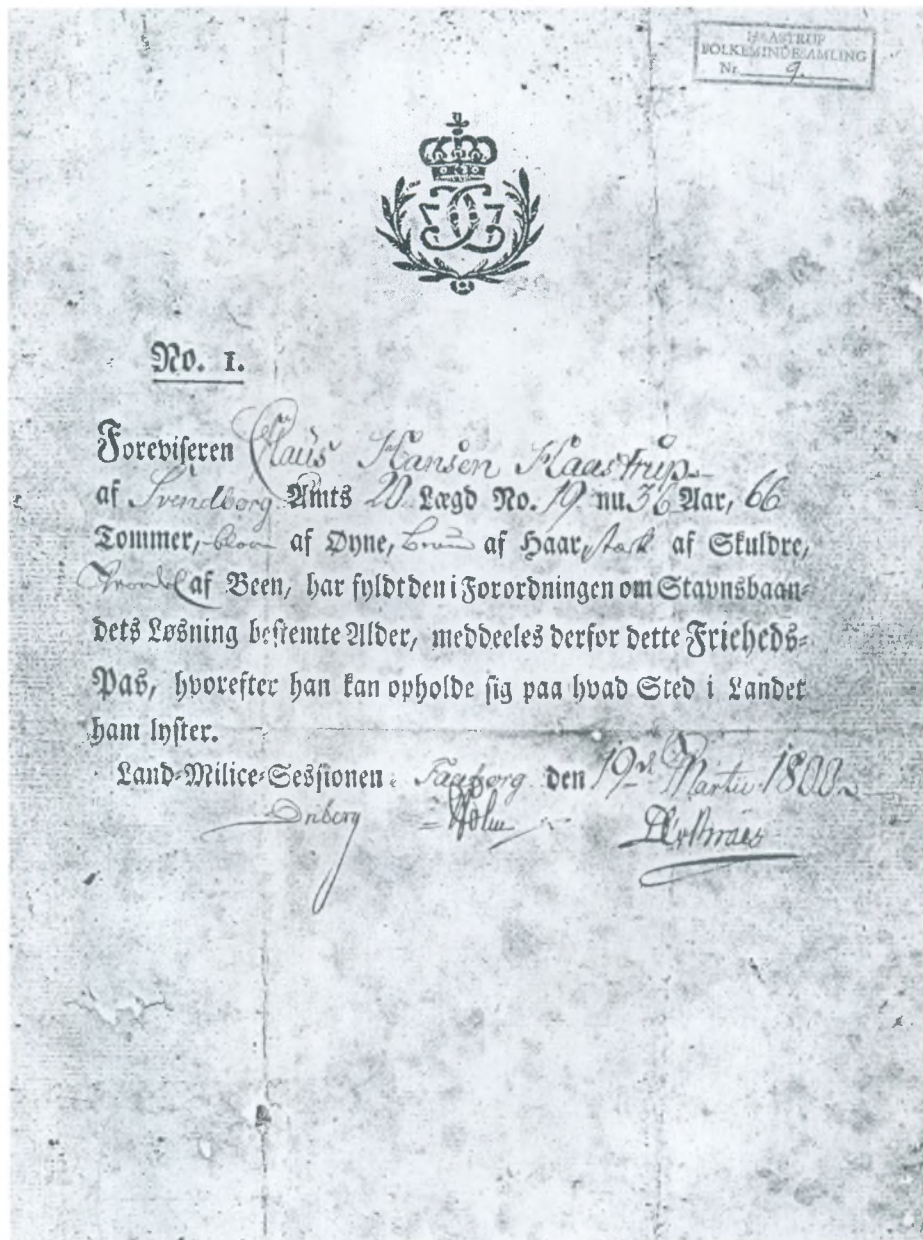 HAASTRUP
FOLKEMINDESAMLING
Nr. 9.
No. 1.
Foreviseren Claus Hansen Haastrup
af Svendborg Amts 20 Lægd No. 19 nu 36 Aar, 66
Tommer, blaa af Øyne, bruun af Haar, stærk af Skuldre,
af Been, har fyldt den i Forordningen om Stavnsbaan-
dets Løsning bestemte Alder, meddeeles derfor dette Friheds-
Pas, hvorefter han kan opholde sig paa hvad Sted i Landet
ham lyster.
Land-Milice-Sessionen i Faaborg den 19de Martii 1800.
Holm